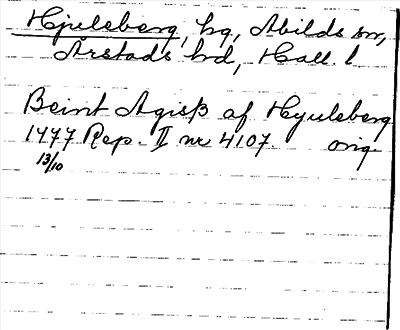 Hjulsberg, hg, Abilds sn,
Årstads hd, Hall. l
Beint Agisß af Hyulsberg
1477 Rep. II nr 4107. orig.
13/10